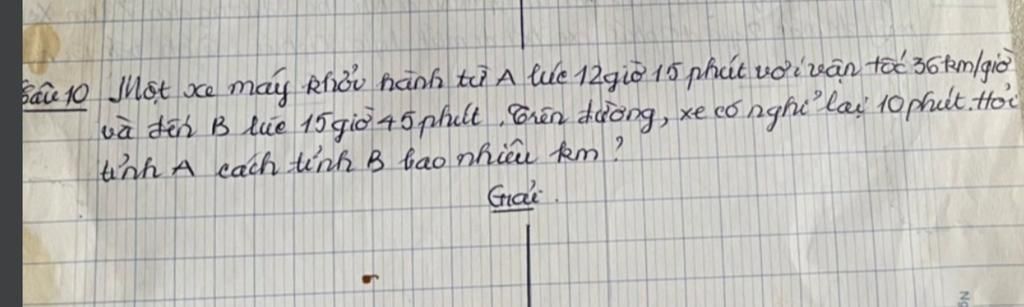 Câu 10 Một xe máy khởi hành từ A lúc 12giờ 15 phút với vận tốc 36km/giờ
và đến B lúc 15giờ 45phút. Trên đường, xe có nghỉ lại 10 phút. Hỏi
tỉnh A cách tỉnh B bao nhiêu km?
Giải.